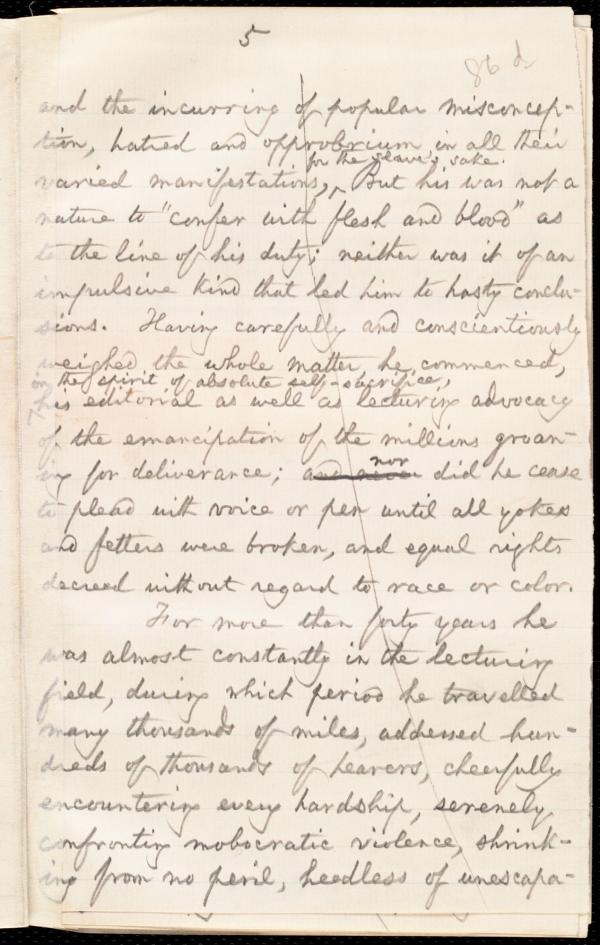 5
86 d
and the incurring of popular misconcep-
tion, hatred and opprobrium, in all their
for the slave's sake.
varied manifestations, ^ But his was not a
nature to "confer with flesh and blood" as
to the line of his duty; neither was it of an
impulsive kind that led him to hasty conclu-
sions. Having carefully and conscientiously
weighed the whole matter, he commenced,
in the spirit of absolute self-sacrifice,
his editorial as well as lecturing advocacy
of the emancipation of the millions groan-
nor
ing for deliverance; and never did he cease
to plead with voice or pen until all yokes
and fetters were broken, and equal rights
decreed without regard to race or color.
For more than forty years he
was almost constantly in the lecturing
field, during which period he travelled
many thousands of miles, addressed hun-
dreds of thousands of hearers, cheerfully
encountering every hardship, serenely
confronting mobocratic violence, shrink-
ing from no peril, heedless of unescapa-